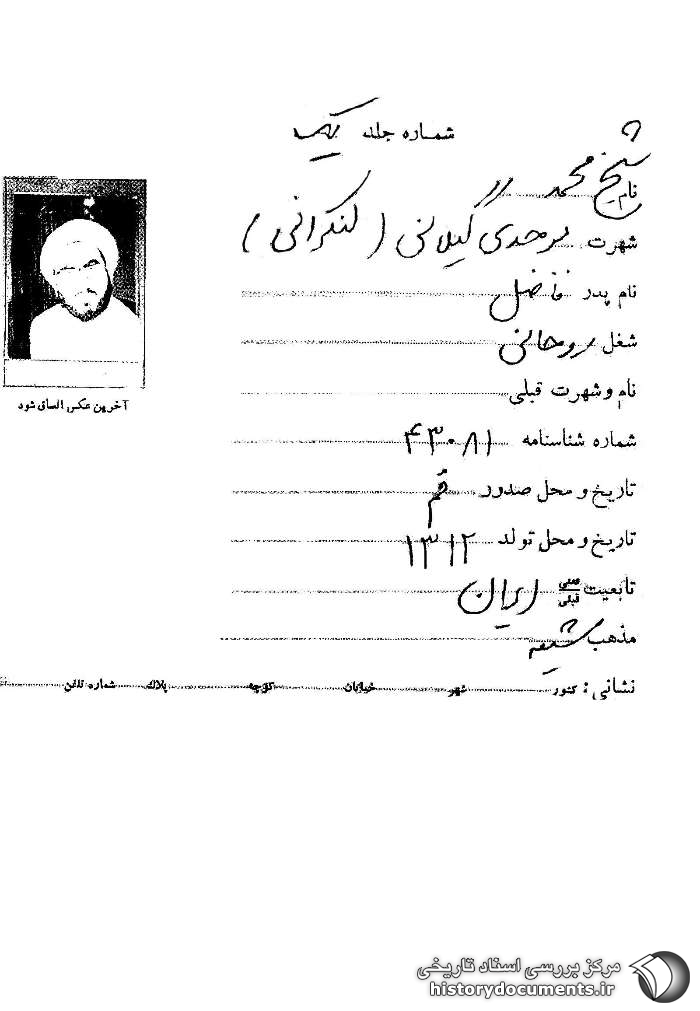 شماره جلد یک
نام شیخ محمد
شهرت موحدی گیلانی (لنکرانی)
نام پدر فاضل
شغل روحانی
نام و شهرت قبلی
شماره شناسنامه ۴۳۰۸۱
تاریخ و محل صدور قم
تاریخ و محل تولد ۱۳۱۲
تابعیت فعلی قبلی ایران
مذهب شیعه
نشانی : کشور شهر خیابان کوچه پلاک شماره تلفن
آخرین عکس الصاق شود
مرکز بررسی اسناد تاریخی
historydocuments.ir